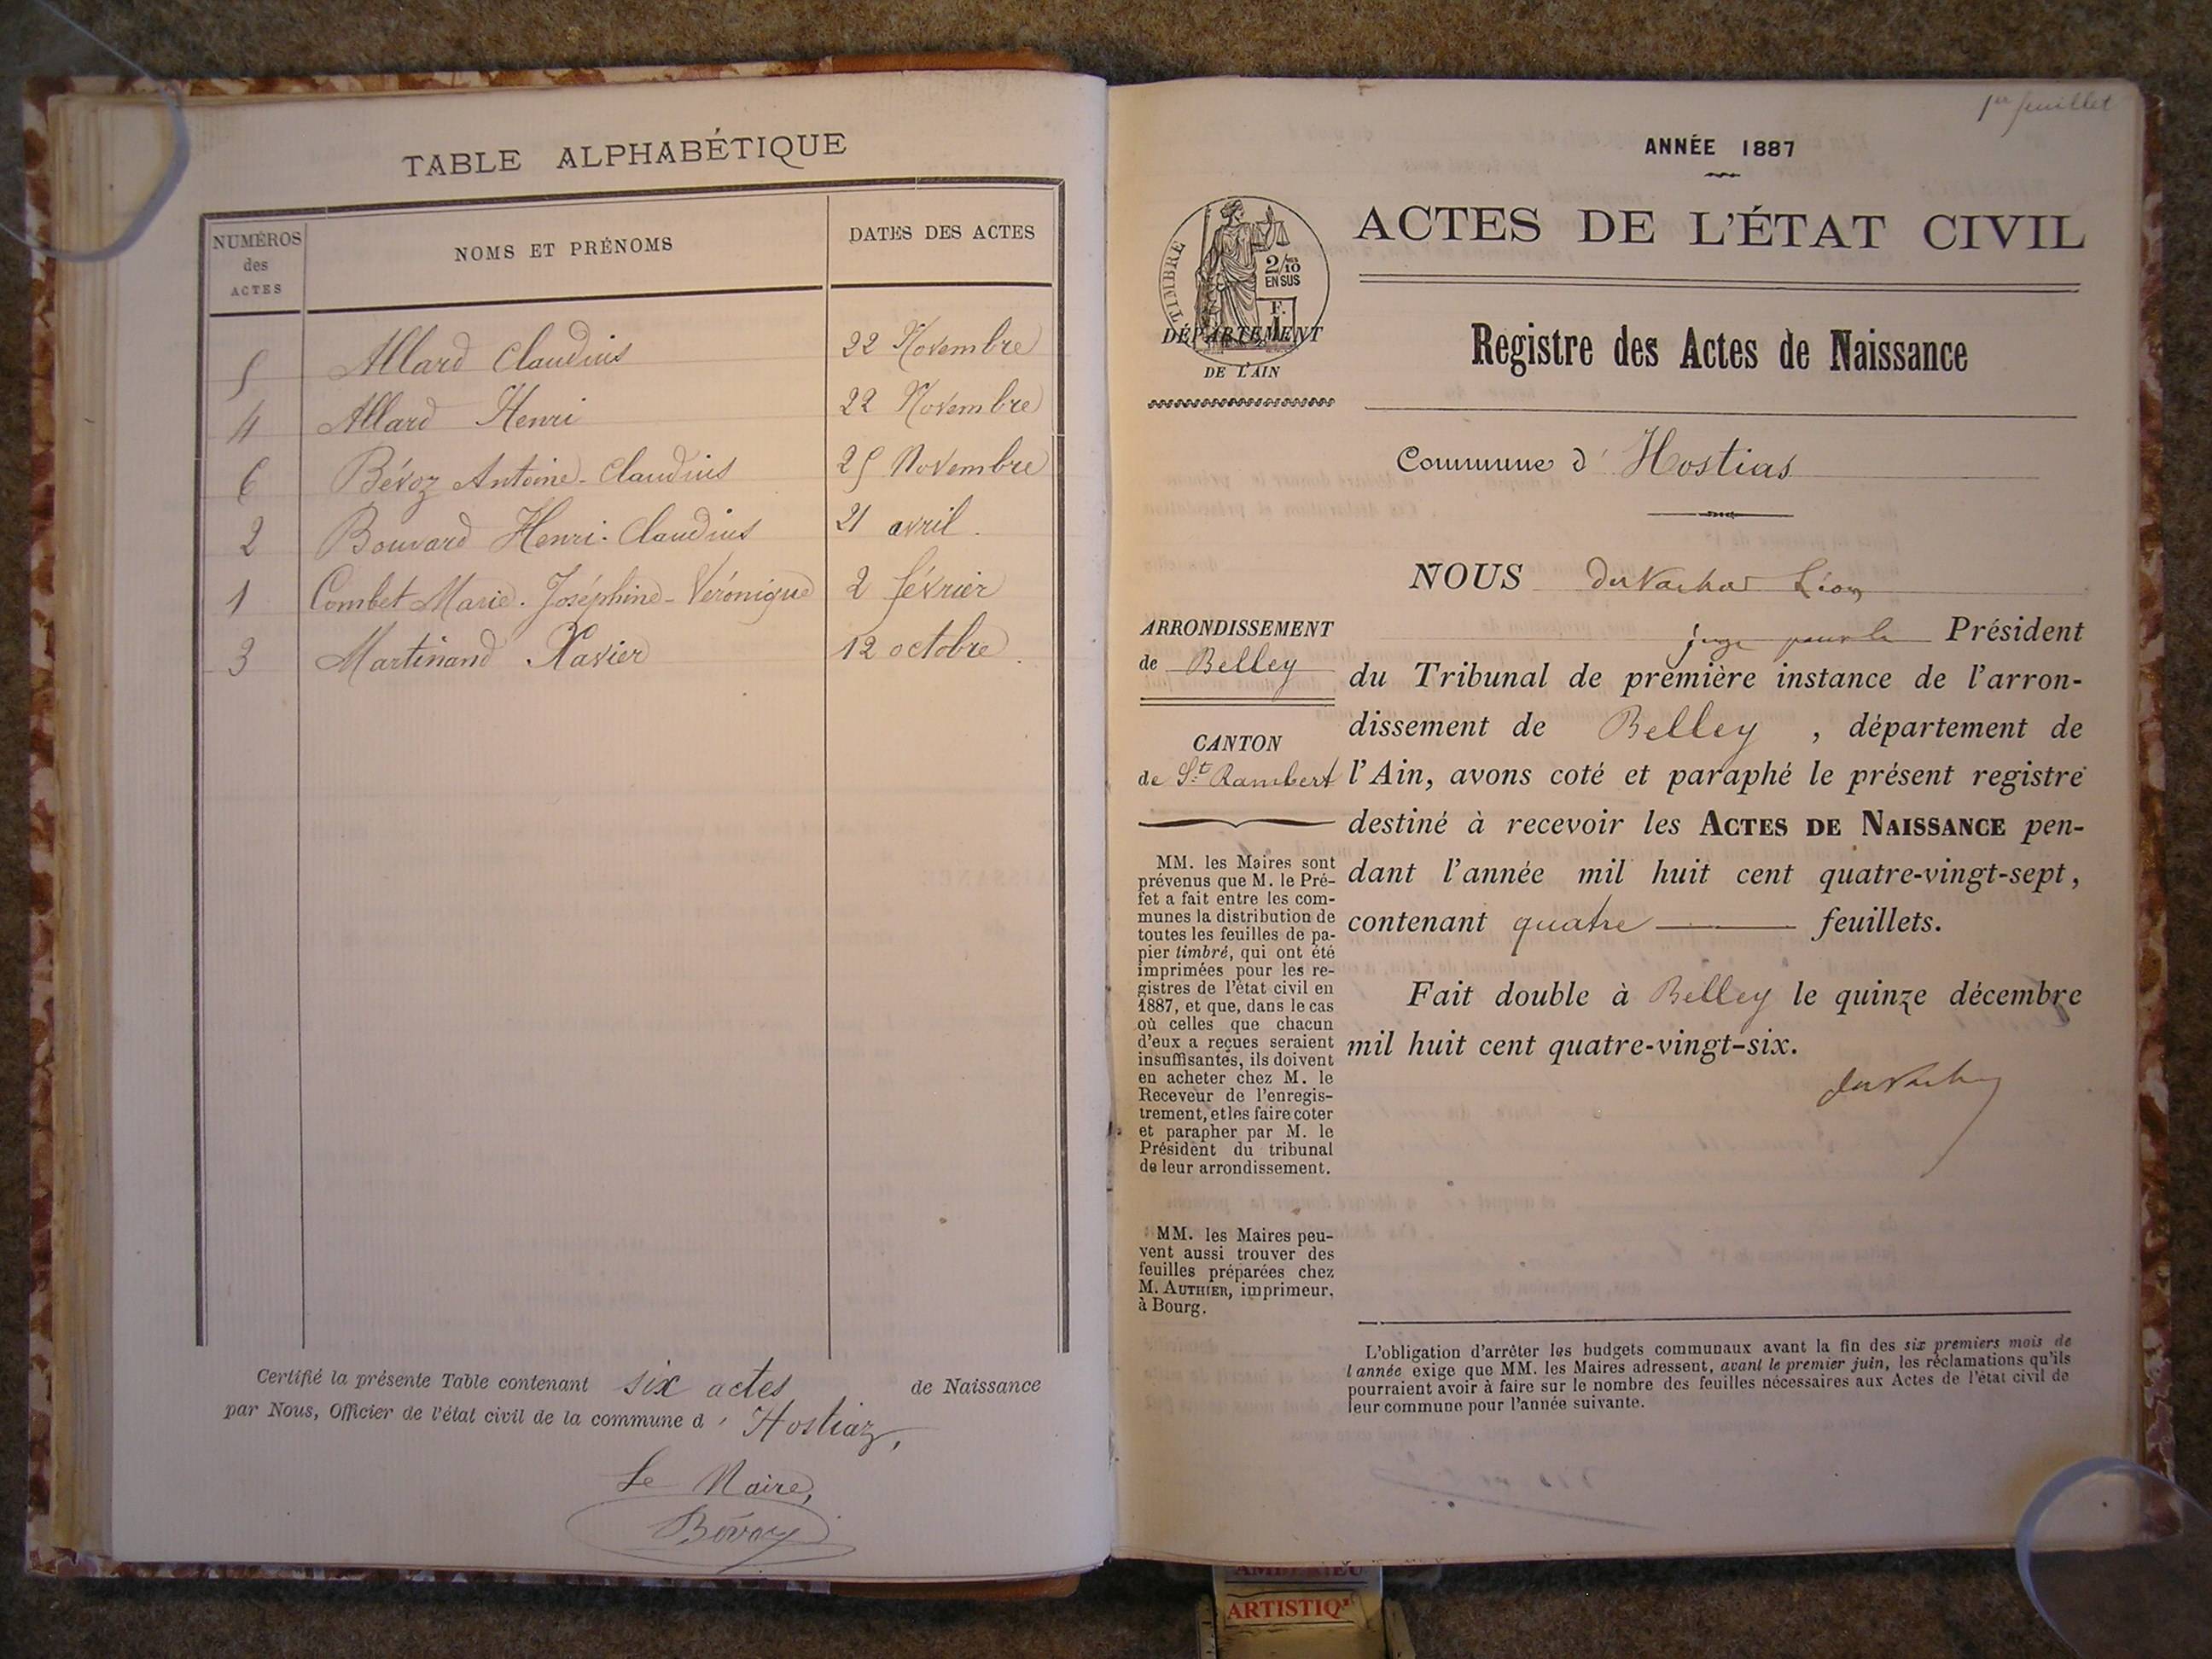 TABLE ALPHABÉTIQUE
NUMÉROS des ACTES NOMS ET PRÉNOMS DATES DES ACTES
5 Allard Claudius 22 Novembre
4 Allard Henri 22 Novembre
6 Bévoz Antoine-Claudius 25 Novembre
2 Bouvard Henri-Claudius 21 avril.
1 Combet Marie-Joséphine-Véronique 2 février
3 Martinand Xavier 12 octobre.
Certifié la présente Table contenant six actes de Naissance
par Nous, Officier de l'état civil de la commune d' Hostiaz,
Le Maire,
Bévoz
1er feuillet
ANNÉE 1887
TIMBRE
2/10
EN SUS
F.
1
DÉPARTEMENT
DE L'AIN
ACTES DE L'ÉTAT CIVIL
Registre des Actes de Naissance
Commune d' Hostias
ARRONDISSEMENT
de Belley
CANTON
de St Rambert
MM. les Maires sont
prévenus que M. le Pré-
fet a fait entre les com-
munes la distribution de
toutes les feuilles de pa-
pier timbré, qui ont été
imprimées pour les re-
gistres de l'état civil en
1887, et que, dans le cas
où celles que chacun
d'eux a reçues seraient
insuffisantes, ils doivent
en acheter chez M. le
Receveur de l'enregis-
trement, et les faire coter
et parapher par M. le
Président du tribunal
de leur arrondissement.
MM. les Maires peu-
vent aussi trouver des
feuilles préparées chez
M. AUTHIER, imprimeur,
à Bourg.
NOUS Léon
juge pour le Président
du Tribunal de première instance de l'arron-
dissement de Belley , département de
l'Ain, avons coté et paraphé le présent registre
destiné à recevoir les ACTES DE NAISSANCE pen-
dant l'année mil huit cent quatre-vingt-sept,
contenant quatre feuillets.
Fait double à Belley le quinze décembre
mil huit cent quatre-vingt-six.
L'obligation d'arrêter les budgets communaux avant la fin des six premiers mois de
l'année exige que MM. les Maires adressent, avant le premier juin, les réclamations qu'ils
pourraient avoir à faire sur le nombre des feuilles nécessaires aux Actes de l'état civil de
leur commune pour l'année suivante.
AMBERIEU
ARTISTIQ